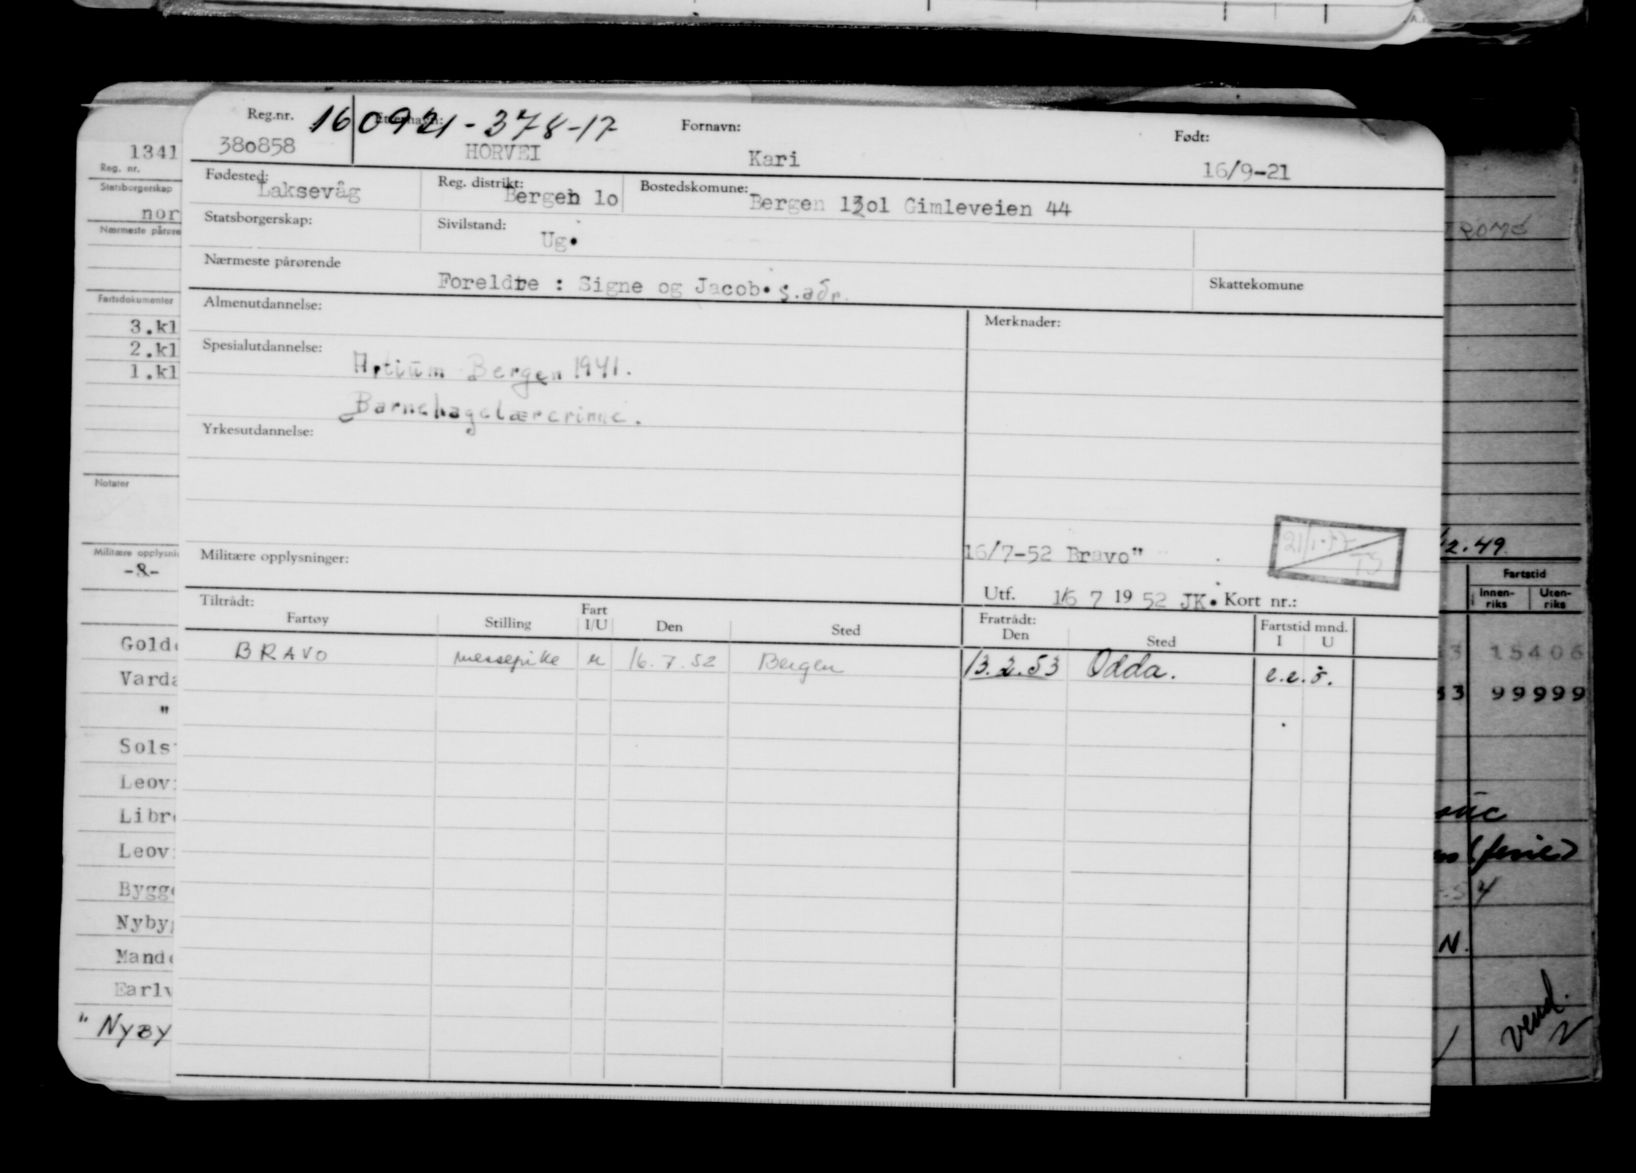 Reg.nr. 160921-378-17 Etternavn: Fornavn: Født:
380858 HORVEI Kari 16/9-21
Fødested: Laksevåg Reg. distrikt: Bergen lo Bostedskomune: Bergen 13o1 Gimleveien 44
Statsborgerskap: Sivilstand: Ug.
Nærmeste pårørende Foreldre : Signe og Jacob. s.adr. Skattekomune
Almenutdannelse: Merknader:
Spesialutdannelse: Artium Bergen 1941.
Barnehagelærerinne.
Yrkesutdannelse:
Militære opplysninger: 16/7-52 Bravo"
Utf. 16 7 19 52 JK. Kort nr.:
Tiltrådt: Fratrådt:
Fartøy Stilling Fart I/U Den Sted Den Sted Fartstid mnd. I U
BRAVO messepike u 16.7.52 Bergen 13.2.53 Odda. e.e.ö.
1341
Reg. nr.
Statsborgerskap
nor
Nærmeste pårøre
Fartsdokumenter
3.kl
2.kl
1.kl
Notater
Militære opplysni
-8-
Golde
Varda
"
Sols
Leov
Libr
Leov
Bygg
Nyby
Mand
Earl
" NYBY
2.49
Fartstid
Innen-riks Uten-riks
3 15406
53 99999
(ferie)
N.
vend
2